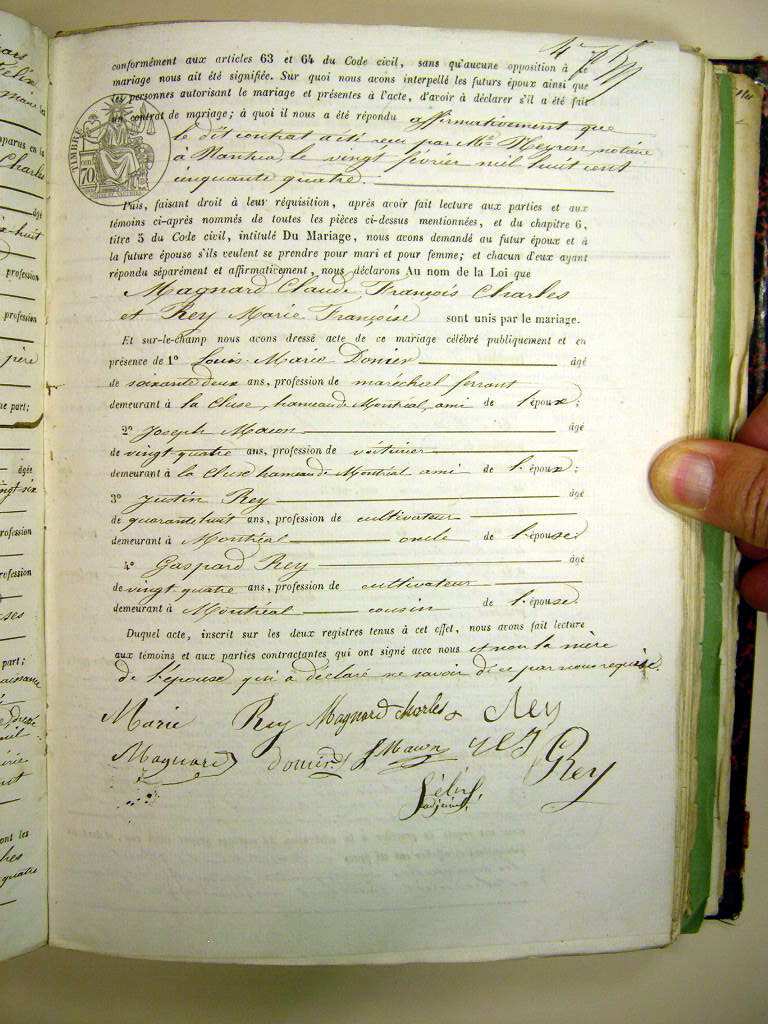 conformément aux articles 63 et 64 du Code civil, sans qu'aucune opposition à ce
mariage nous ait été signifiée. Sur quoi nous avons interpellé les futurs époux ainsi que
les personnes autorisant le mariage et présentes à l'acte, d'avoir à déclarer s'il a été fait
un contrat de mariage; à quoi il nous a été répondu affirmativement que
le dit contrat a été reçu par Me Meyron, notaire
à Nantua le vingt février mil huit cent
cinquante quatre.
TIMBRE
70
Puis, faisant droit à leur réquisition, après avoir fait lecture aux parties et aux
témoins ci-après nommés de toutes les pièces ci-dessus mentionnées, et du chapitre 6,
titre 5 du Code civil, intitulé Du Mariage, nous avons demandé au futur époux et à
la future épouse s'ils veulent se prendre pour mari et pour femme; et chacun d'eux ayant
répondu séparément et affirmativement, nous déclarons Au nom de la Loi que
Magnard Claude François Charles
et Rey Marie Françoise sont unis par le mariage.
Et sur-le-champ nous avons dressé acte de ce mariage célébré publiquement et en
présence de 1° Louis Marie Donier âgé
de soixante deux ans, profession de maréchal ferrant
demeurant à la Cluse, hameau de Montréal, ami de l'époux;
2° Joseph Maron âgé
de vingt quatre ans, profession de voiturier
demeurant à la Cluse hameau de Montréal ami de l'époux;
3° Justin Rey âgé
de quarante huit ans, profession de cultivateur
demeurant à Montréal oncle de l'épouse
4° Gaspard Rey âgé
de vingt quatre ans, profession de cultivateur
demeurant à Montréal cousin de l'épouse.
Duquel acte, inscrit sur les deux registres tenus à cet effet, nous avons fait lecture
aux témoins et aux parties contractantes qui ont signé avec nous et non la mère
de l'épouse qui a déclaré ne savoir de ce par nous requise.
Marie Rey Magnard charles Rey
Magnard donier J Maron Rey J GRey
adjoint